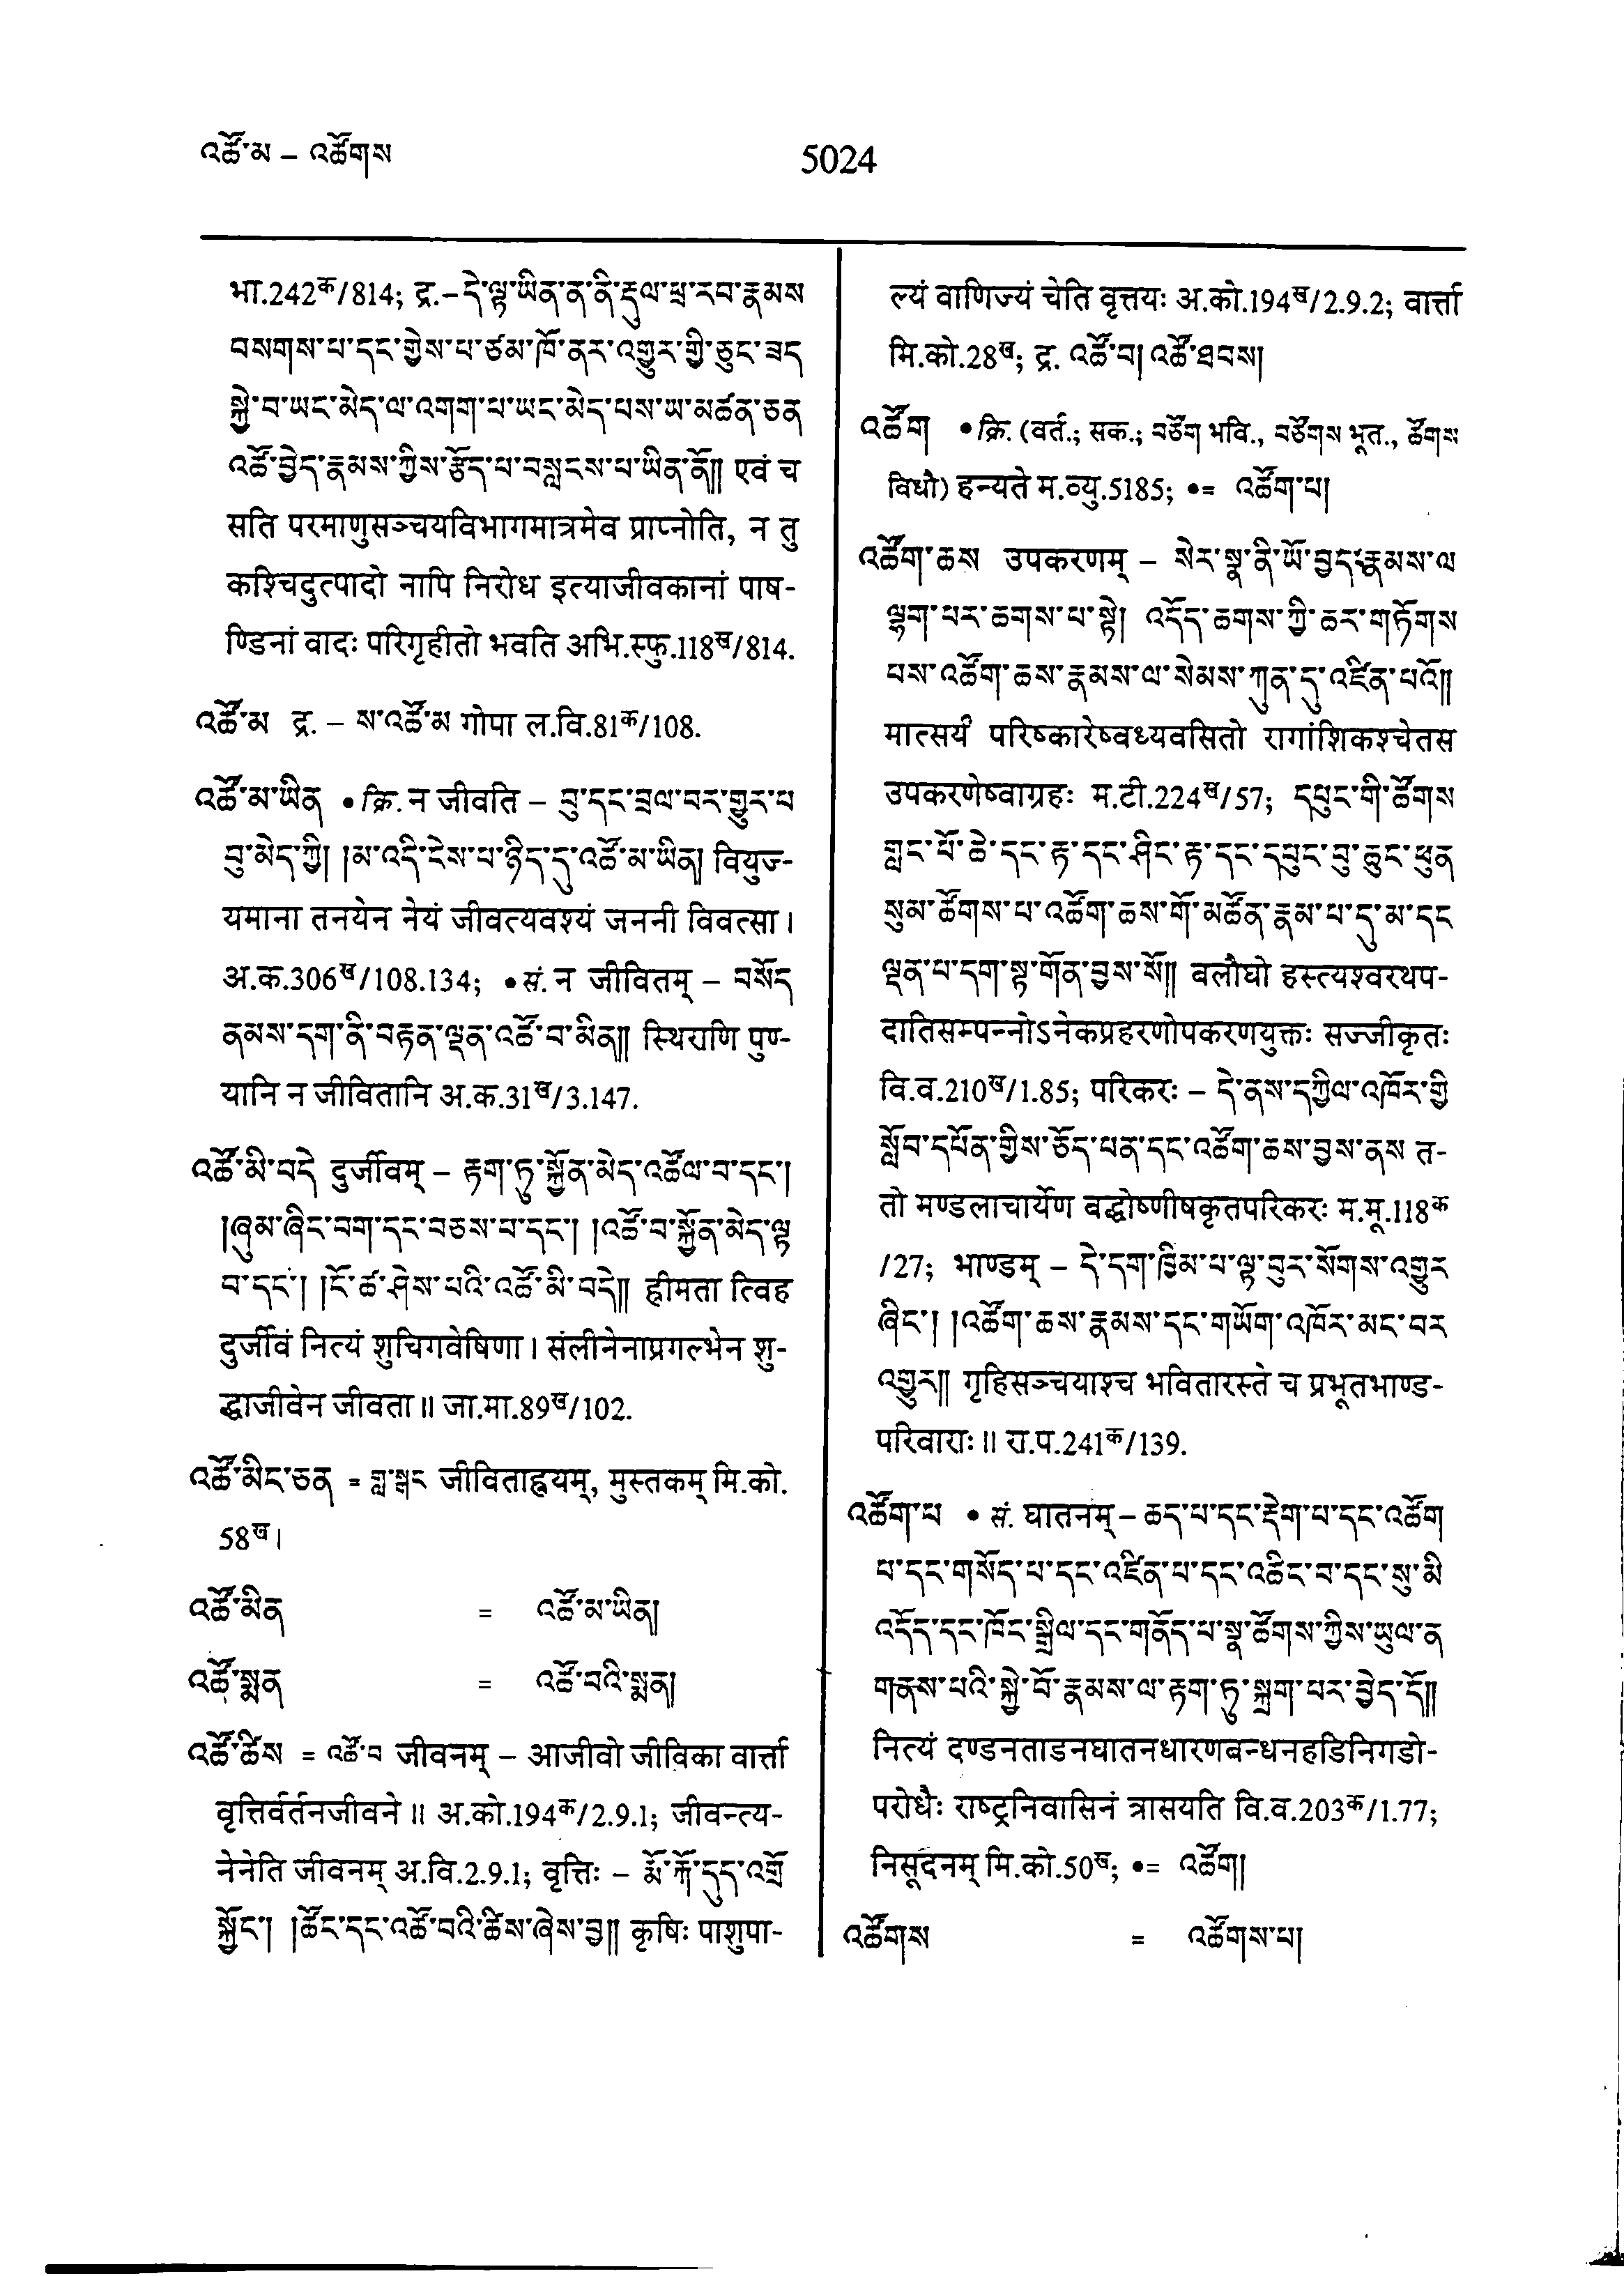 འཚོ་མ – འཚོགས
5024
भा.242क/814; द्र.–དེ་ལྟ་ཡིན་ན་ནི་རྡུལ་ཕྲ་རབ་རྣམས
བསགས་པ་དང་གྱེས་པ་ཙམ་ཁོ་ནར་འགྱུར་གྱི་ཅུང་ཟད
སྐྱེ་བ་ཡང་མེད་ལ་འགག་པ་ཡང་མེད་པས་ཡ་མཚན་ཅན
འཚོ་བྱེད་རྣམས་ཀྱིས་རྩོད་པ་བསླངས་པ་ཡིན་ནོ།། एवं च
सति परमाणुसञ्चयविभागमात्रमेव प्राप्नोति, न तु
कश्चिदुत्पादो नापि निरोध इत्याजीवकानां पाष-
ण्डिनां वादः परिगृहीतो भवति अभि.स्फु.118ख/814.
འཚོ་མ द्र. – ས་འཚོ་མ गोपा ल.वि.81क/108.
འཚོ་མ་ཡིན • क्रि. न जीवति – བུ་དང་བྲལ་བར་གྱུར་པ
བུ་མེད་ཀྱི། །མ་འདི་ངེས་པ་ཉིད་དུ་འཚོ་མ་ཡིན། वियुज-
यमाना तनयेन नेयं जीवत्यवश्यं जननी विवत्सा।
अ.क.306ख/108.134; • सं. न जीवितम् – བསོད
ནམས་དག་ནི་བརྟན་ལྡན་འཚོ་བ་མིན།། स्थिराणि पुण-
यानि न जीवितानि अ.क.31ख/3.147.
འཚོ་མི་བདེ दुर्जीवम् – རྟག་ཏུ་སྐྱོན་མེད་འཚོལ་བ་དང་།
།ཞུམ་ཞིང་བག་དང་བཅས་པ་དང་། །འཚོ་བ་སྐྱོན་མེད་ལྟ
བ་དང་། །ངོ་ཚ་ཤེས་པའི་འཚོ་མི་བདེ།། ह्रीमता त्विह
दुर्जीवं नित्यं शुचिगवेषिणा। संलीनेनाप्रगल्भेन शु-
द्धाजीवेन जीवता॥ जा.मा.89ख/102.
འཚོ་མིང་ཅན = གླ་སྒང जीविताह्वयम्, मुस्तकम् मि.को.
58ख।
འཚོ་མིན = འཚོ་མ་ཡིན།
འཚོ་སྨན = འཚོ་བའི་སྨན།
འཚོ་ཚིས = འཚོ་བ जीवनम् – आजीवो जीविका वार्त्ता
वृत्तिर्वर्तनजीवने॥ अ.को.194क/2.9.1; जीवन्त्य-
नेनेति जीवनम् अ.वि.2.9.1; वृत्तिः – རྨོ་རྐོ་དུད་འགྲོ
སྐྱོང་། །ཚོང་དང་འཚོ་བའི་ཚིས་ཞེས་བྱ།། कृषिः पाशुपा-
ल्यं वाणिज्यं चेति वृत्तयः अ.को.194ख/2.9.2; वार्त्ता
मि.को.28ख; द्र. འཚོ་བ། འཚོ་ཐབས།
འཚོག • क्रि. (वर्त.; सक.; བཙོག भवि., བཙོགས भूत., ཚོགས
विधौ) हन्यते म.व्यु.5185; •= འཚོག་པ།
འཚོག་ཆས उपकरणम् – སེར་སྣ་ནི་ཡོ་བྱད་རྣམས་ལ
ལྷག་པར་ཆགས་པ་སྟེ། འདོད་ཆགས་ཀྱི་ཆར་གཏོགས
པས་འཚོག་ཆས་རྣམས་ལ་སེམས་ཀུན་དུ་འཛིན་པའོ།།
मात्सर्यं परिष्कारेष्वध्यवसितो रागांशिकश्चेतस
उपकरणेष्वाग्रहः म.टी.224ख/57; དཔུང་གི་ཚོགས
གླང་པོ་ཆེ་དང་རྟ་དང་ཤིང་རྟ་དང་དཔུང་བུ་ཆུང་ཕུན
སུམ་ཚོགས་པ་འཚོག་ཆས་གོ་མཚོན་རྣམ་པ་དུ་མ་དང
ལྡན་པ་དག་སྟ་གོན་བྱས་སོ།། बलौघो हस्त्यश्वरथप-
दातिसम्पन्नोऽनेकप्रहरणोपकरणयुक्तः सज्जीकृतः
वि.व.210ख/1.85; परिकरः – དེ་ནས་དཀྱིལ་འཁོར་གྱི
སློབ་དཔོན་གྱིས་ཅོད་པན་དང་འཚོག་ཆས་བྱས་ནས त-
तो मण्डलाचार्येण बद्धोष्णीषकृतपरिकरः म.मू.118क
/27; भाण्डम् – དེ་དག་ཁྱིམ་པ་ལྟ་བུར་སོགས་འགྱུར
ཞིང་། །འཚོག་ཆས་རྣམས་དང་གཡོག་འཁོར་མང་བར
འགྱུར།། गृहिसञ्चयाश्च भवितारस्ते च प्रभूतभाण्ड-
परिवाराः॥ रा.प.241क/139.
འཚོག་པ • सं. घातनम् – ཆད་པ་དང་རྡེག་པ་དང་འཚོག
པ་དང་གསོད་པ་དང་འཛིན་པ་དང་འཆིང་བ་དང་སུ་མི
འདོད་དང་ཁོང་སྒྲིལ་དང་གནོད་པ་སྣ་ཚོགས་ཀྱིས་ཡུལ་ན
གནས་པའི་སྐྱེ་བོ་རྣམས་ལ་རྟག་ཏུ་སྐྲག་པར་བྱེད་དོ།།
नित्यं दण्डनताडनघातनधारणबन्धनहडिनिगडो-
परोधैः राष्ट्रनिवासिनं त्रासयति वि.व.203क/1.77;
निसूदनम् मि.को.50ख; •= འཚོག།
འཚོགས = འཚོགས་པ།